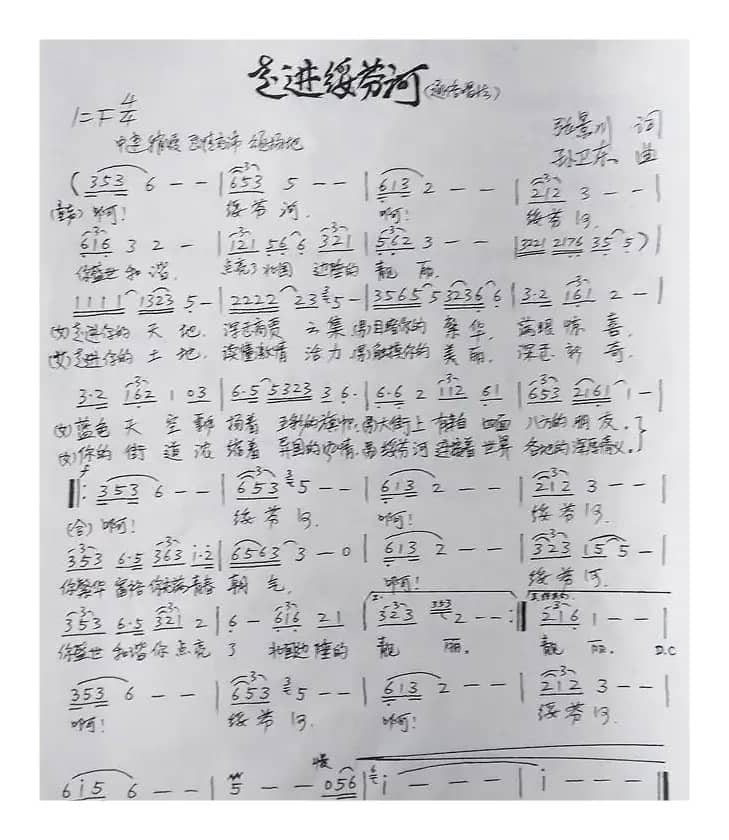 走进绥芬河(通俗唱法)
1=F 4/4
张景川 词
中速 稍慢
孙卫东 曲
(353 6 - - | 653 5 - - | 613 2 - - | 212 3 - - |
啊! 绥芬河. 啊! 绥芬河.
616 3 2 - | 121 56 6 321 | 562 3 - - | 2221 2176 35 5)
你盛世和谐. 点亮了北国 边陲的 靓丽.
1111 1323 5 - | 2222 23 5 - | 3565 5 3236 6 | 3·2 161 2 - |
(女)走进你的 天地. 深悉商贾 云集(男)目睹你的 繁华. 惊喜.
(女)走进你的 土地. 读懂激情 活力(男)触摸你的 美丽. 深悉 神奇.
3·2 162 1 03 | 6·5 5323 3 6· | 6·6 2 112 61 | 653 2161 1 - |
(女)蓝色 天空 飘扬着 的旗帜.(男)大街上 有来自 四面 八方的 朋友.
(女)你的 街道 浓缩着 异国的 风情.(男)绥芬河 连接着 世界 各地的 深厚情义.
f
‖: 353 6 - - | 653 5 - - | 613 2 - - | 212 3 - - |
(合)啊! 绥芬河. 啊! 绥芬河.
353 6·5 363 i·2 | 6563 3 - 0 | 613 2 - - | 323 15 5 - |
你繁华 富裕 你充满 青春 朝气. 啊! 绥芬河.
353 6·5 321 2 | 6 - 616 21 | 323 353 2 - - :‖ 216 1 - - |
你盛世 和谐 你点亮 了 北国边陲的 靓丽. 靓丽. D.C
353 6 - - | 653 5 - - | 613 2 - - | 212 3 - - |
啊! 绥芬河. 啊! 绥芬河.
慢
6i5 6 - - | 5 - - 056 | i - - - | i - - - ‖